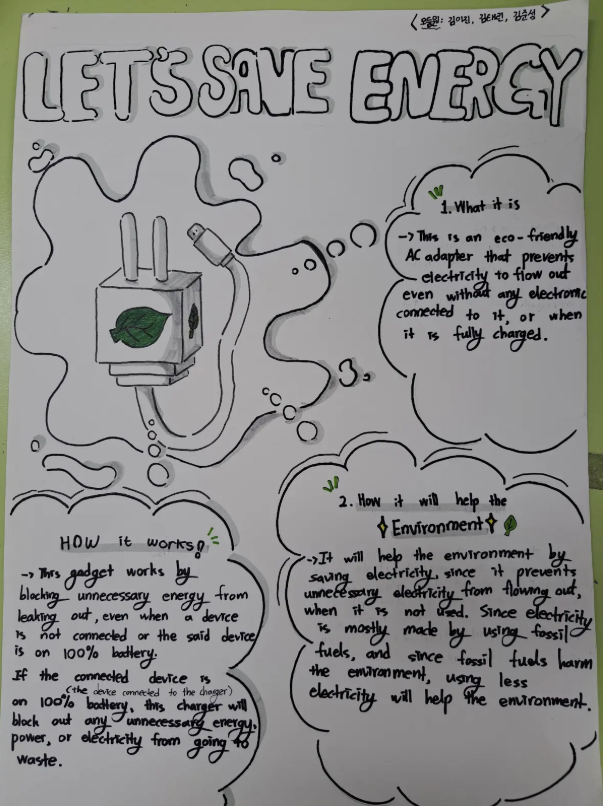 <모둠원: 김이진, 김태린, 김준성>
LET'S SAVE ENERGY
1. What it is
→ This is an eco-friendly
AC adapter that prevents
electricity to flow out
even without any electronic
connected to it, or when
it is fully charged.
HOW it works?
→ This gadget works by
blocking unnecessary energy from
leaking out, even when a device
is not connected or the said device
is on 100% battery.
If the connected device is
(the device connected to the charger)
on 100% battery, this charger will
block out any unnecessary energy,
power, or electricity from going to
waste.
2. How it will help the
Environment
→ It will help the environment by
saving electricity, since it prevents
unnecessary electricity from flowing out,
when it is not used. Since electricity
is mostly made by using fossil
fuels, and since fossil fuels harm
the environment, using less
electricity will help the environment.